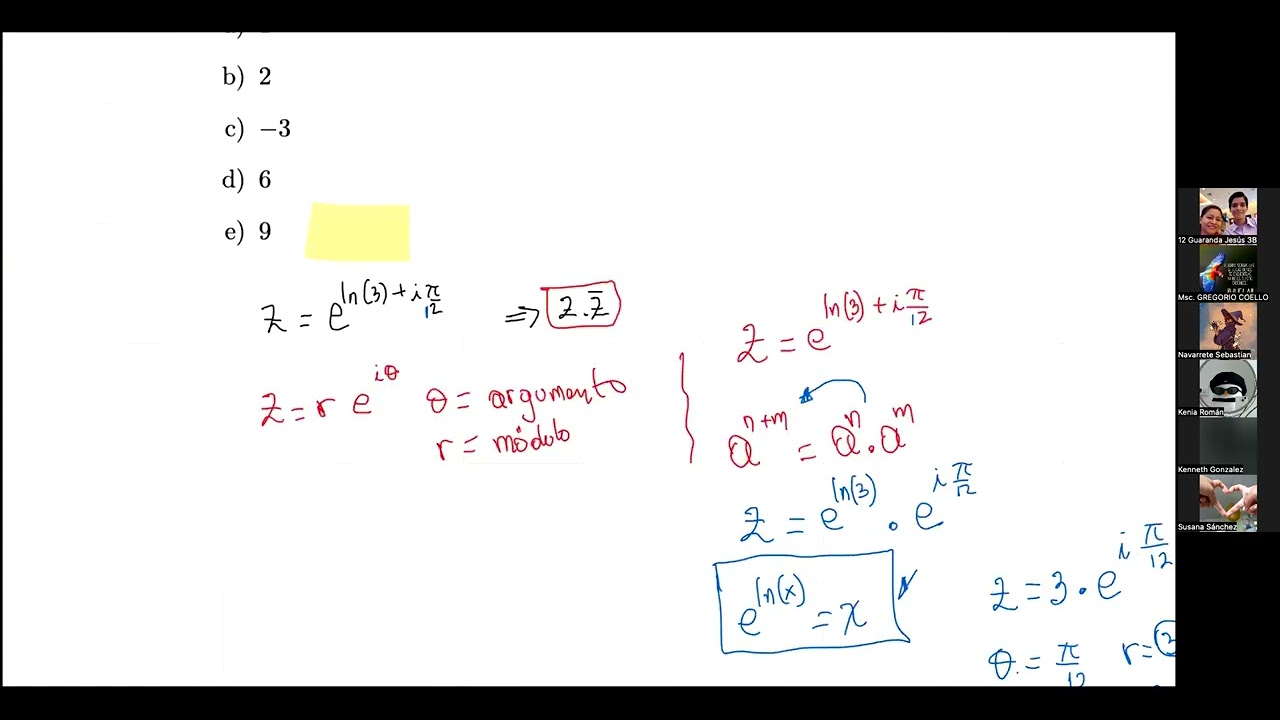 b) 2
c) −3
d) 6
e) 9
z = e^{ln(3) + i π/12} ⇒ z.z̄
z = r e^{iθ} θ = argumento
r = módulo
z = e^{ln(3) + i π/12}
a^{n+m} = a^n . a^m
z = e^{ln(3)} . e^{i π/12}
e^{ln(x)} = x
z = 3 . e^{i π/12}
θ = π/12 r =
12 Guaranda Jesús 3B
Msc. GREGORIO COELLO
Navarrete Sebastian
Kenia Román
Kenneth Gonzalez
Susana Sánchez